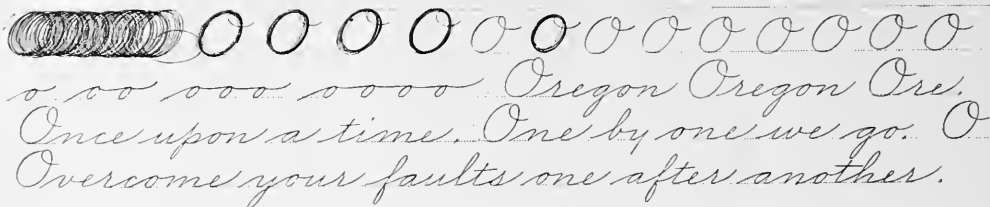 O O O O O O O O O O O O O
o oo ooo oooo Oregon Oregon Ore.
Once upon a time. One by one we go. O
Overcome your faults one after another.